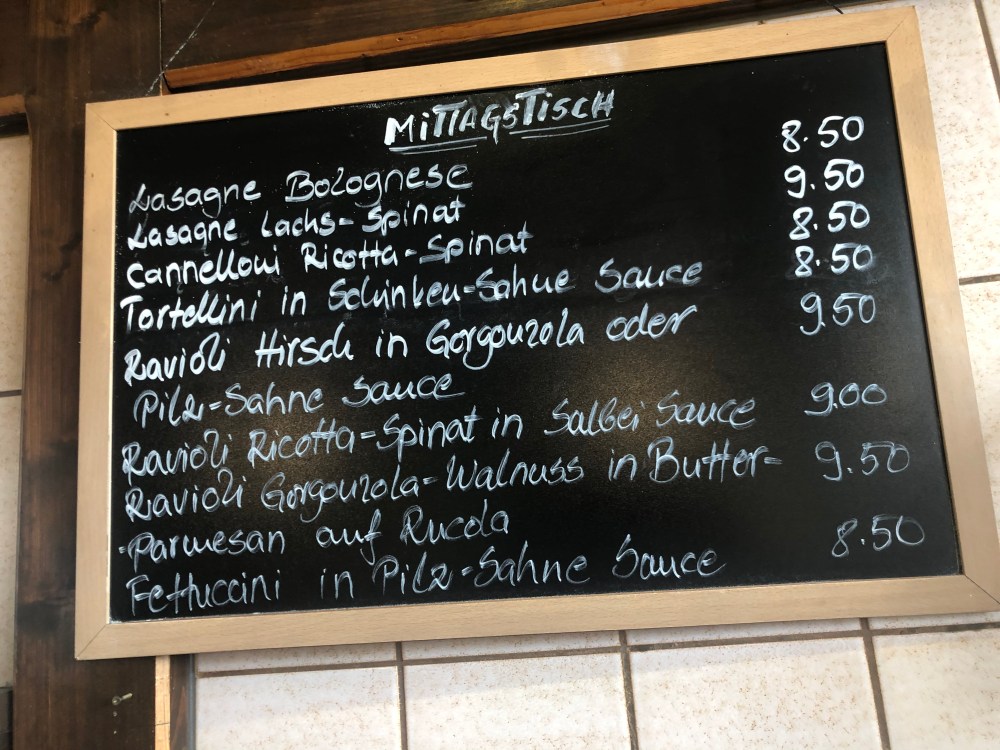 MITTAGSTISCH
Lasagne Bolognese 8.50
Lasagne Lachs-Spinat 9.50
Cannelloni Ricotta-Spinat 8.50
Tortellini in Schinken-Sahne Sauce 8.50
Ravioli Hirsch in Gorgonzola oder 9.50
Pilz-Sahne Sauce
Ravioli Ricotta-Spinat in Salbei Sauce 9.00
Ravioli Gorgonzola-Walnuss in Butter- 9.50
-Parmesan auf Rucola
Fettuccini in Pilz-Sahne Sauce 8.50